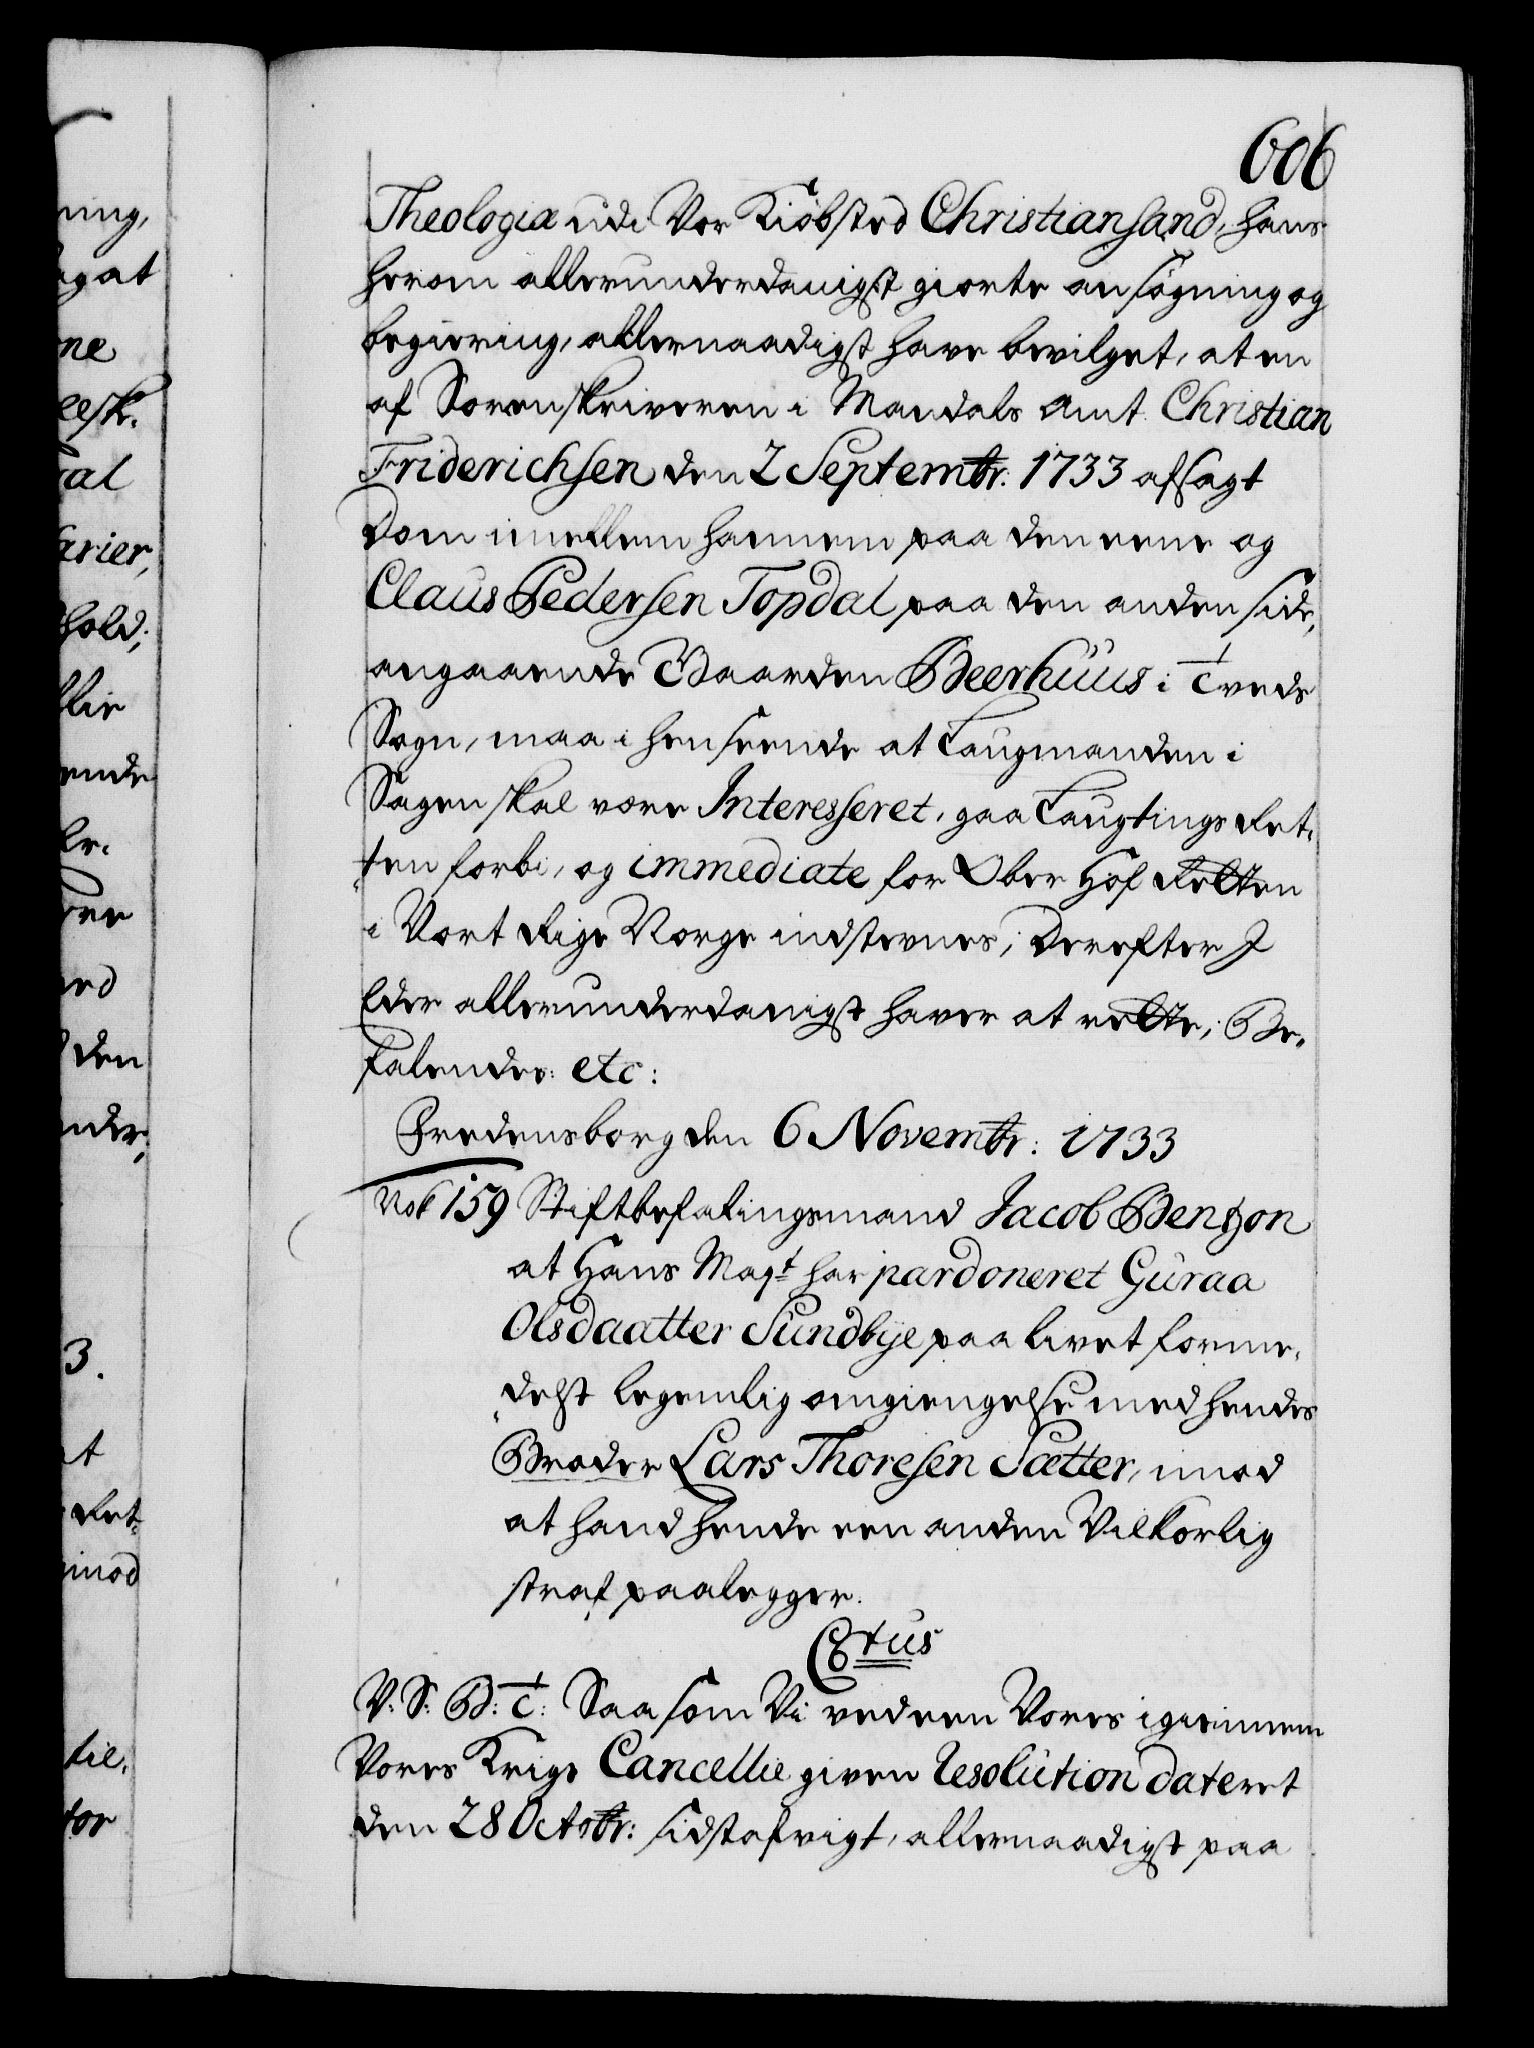 606
Theologiæ udi Vor Kiöbsted Christiansand, hans
herom allerunderdanigst giorte ansögning og
begiering, allernaadigst have bevilget, at en
af Sorenskriveren i Mandals Amt Christian
Friderichsen den 2 Septembr: 1733 afsagt
Dom imellem hannem paa den eene og
Claus Pedersen Topdal paa den anden side,
angaaende Gaarden Beerhuus i Tveds
Sogn, maa i henseende at Laugmanden i
Sagen skal være Interesseret, gaa Laugtings Ret-
ten forbi, og immediate for Ober Hof Retten
i Vort Rige Norge indstevnes; Derefter I
Eder allerunderdanigst haver at rette; Be-
falendes: etc:
Fredensborg den 6 Novembr: 1733
No 159 Stiftbefalingsmand Jacob Bentzon
at Hans Mayt har pardoneret Guraa
Olsdaatter Sundbye paa livet forme-
delst legemlig omgiengelse med hendes
Broder Lars Thoresen Sætter, imod
at hand hende een anden Vilkorlig
straf paalegger.
V: S: G: T: Saasom Vi ved een Vores igiennem
Vores Krigs Cancellie given Resolution dateret
den 28 Octobr: sidstafvigt, allernaadigst paa
ning,
ne
eesk.
al
arier,
hold;
lie
ende
er.
ed
den
nder,
3.
t
Ret-
imod
til,
tor